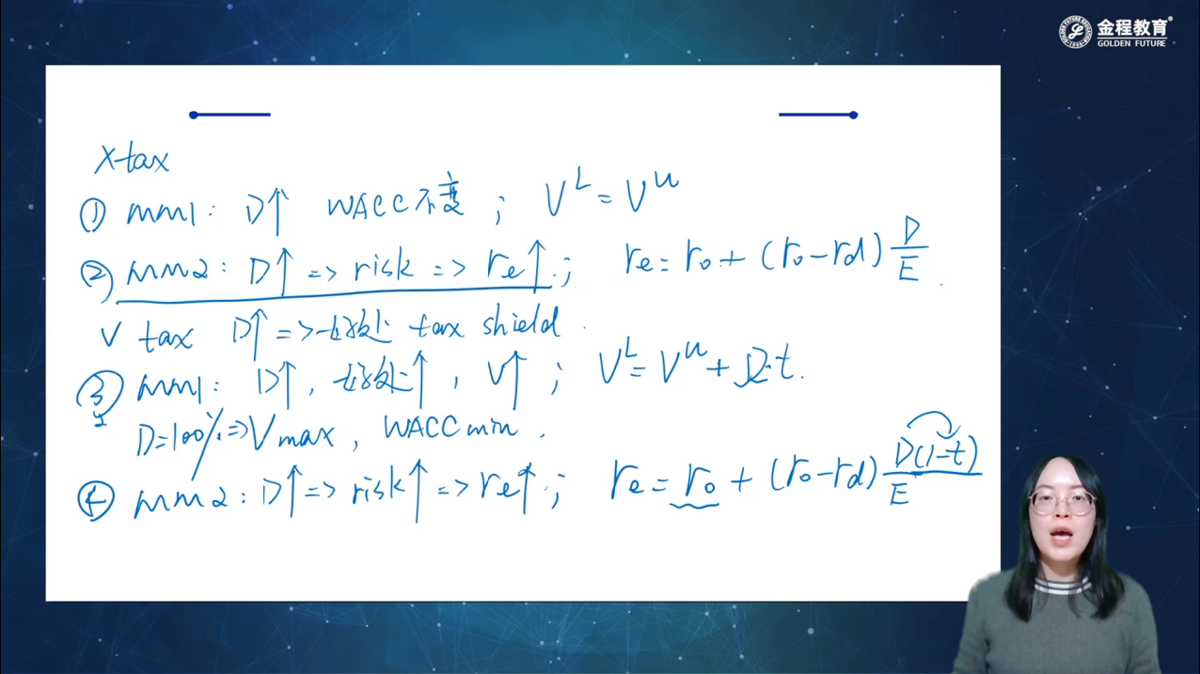 金程教育
GOLDEN FUTURE
X tax
① MM1: D↑ WACC不变; V^L = V^U
② MM2: D↑ => risk => re↑; re = r0 + (r0 - rd) D/E.
V tax D↑ => 好处 tax shield.
③ MM1: D↑, 好处↑, V↑; V^L = V^U + D·t.
D=100% => V max, WACC min.
④ MM2: D↑ => risk↑ => re↑; re = r0 + (r0 - rd) D(1-t)/E